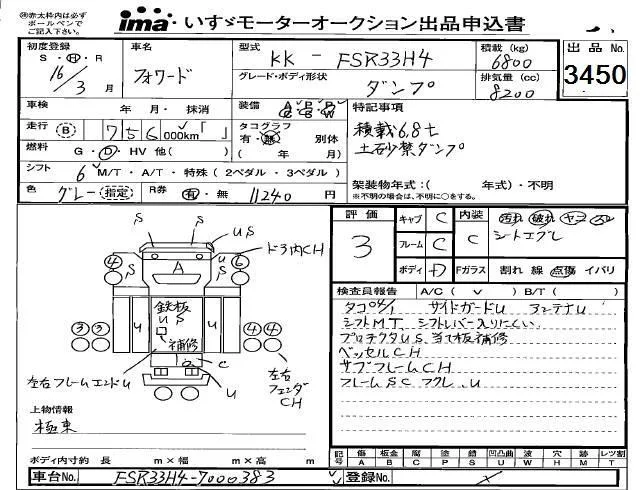 ㊟赤太枠内は必ず
ボールペンで
ご記入下さい。
ima いすゞモーターオークション出品申込書
初度登録
S・H・R
16/3月
車名
フォワード
型式
KK-FSR33H4
グレード・ボディ形状
ダンプ
積載(kg)
6800
排気量(cc)
8200
出品No.
3450
車検 年・月・抹消
走行 B 756,000km「 」
燃料 G・D・HV 他( )
シフト 6 M/T・A/T・特殊(2ペダル・3ペダル)
色 グレー(指定) R券 有・無 11240円
装備 A P P A C B B W
タコグラフ
有・無 別体
( 年 月)
特記事項
積載6.8t
土砂禁ダンプ
架装物年式:( 年式)・不明
※不明の場合は、不明に○をする。
評価
3
キャブ C
フレーム C
ボディ D
内装 C
Fガラス
汚れ 破れ ヤニ
シートエグレ
割れ 線 点傷 イバリ
検査員報告 A/C( ∨ ) B/T( )
タコ04/1 サイドガードU アンテナU
シフトMT シフトレバー入りにくい
プロテクタUS 当て板補修
ベッセルCH
サブフレームCH
フレームSC フクレ.U
S
S
US
ドア内CH
S
S
U
A
④
⑥
鉄板
US
補修
U
U
③③
④④
a
C
U
左右フレームエンドU
左右
フェンダ
CH
上物情報
極東
ボディ内寸約 長 m×幅 m×高 m
記号
傷 板金 腐 塗 錆 凹凸曲 波 穴 跡 レツ割
A B C P S U W H M T
車台No. FSR33H4-7000383
登録No.